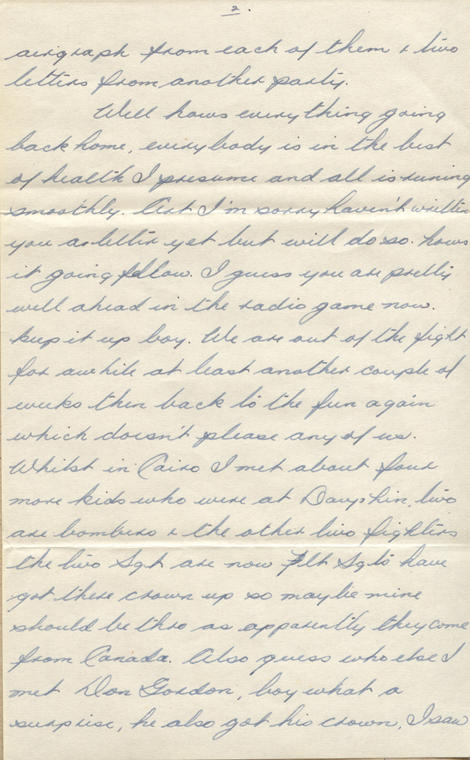 2.
airgraph from each of them & two
letters from another party.
Well hows everything going
back home, everybody is in the best
of health I presume and all is runing
smoothly. Art I'm sorry haven't written
you a letter yet but will do so. hows
it going fellow. I guess you are pretty
well ahead in the radio game now.
keep it up boy. We are out of the fight
for awhile at least another couple of
weeks then back to the fun again
which doesn't please any of us.
Whilst in Cairo I met about four
more kids who were at Dauphin, two
are bombers & the other two fighters
the two Sgt are now Flt Sgts have
got there crown up so maybe mine
should be thro as apparently they come
from Canada. Also guess who else I
met Don Gordon, boy what a
surprise, he also got his crown, I saw